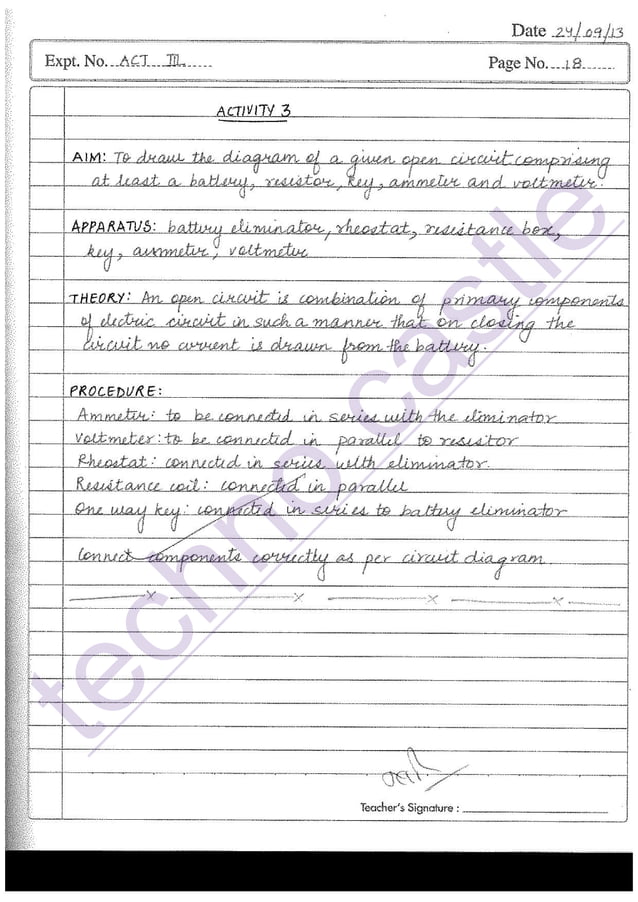 Date 24/09/13
Expt. No. ACT III
Page No. 18
ACTIVITY 3
AIM: To draw the diagram of a given open circuit comprising
at least a battery, resistor, key, ammeter and voltmeter.
APPARATUS: battery eliminator, rheostat, resistance box,
key, ammeter, voltmeter
THEORY: An open circuit is combination of primary components
of electric circuit in such a manner that on closing the
circuit no current is drawn from the battery.
PROCEDURE:
Ammeter: to be connected in series with the eliminator
Voltmeter: to be connected in parallel to resistor
Rheostat: connected in series with eliminator.
Resistance coil: connected in parallel
One way key: connected in series to battery eliminator
Connect components correctly as per circuit diagram.
techno castle
Teacher's Signature :